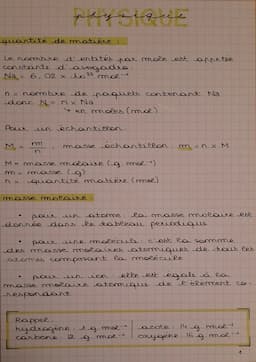 PHYSIQUE
physique
quantité de matière :
Le nombre d'entités par mole est appelée
constante d'avogadro
Na = 6,02 × 10²³ mol⁻¹
n = nombre de paquets contenant Na
donc N = n × Na
↳ en moles (mol)
Pour un échantillon
M = m/n , masse échantillon m = n × M
M = masse molaire (g.mol⁻¹)
m = masse (g)
n = quantité matière (mol)
masse molaire
• pour un atome la masse molaire est
donnée dans le tableau périodique
• pour une molécule c'est la somme
des masses molaires atomiques de tout les
atomes composant la molécule
• pour un ion elle est égale à la
masse molaire atomique de l'élément co-
respondant
Rappel :
hydrogène 1 g.mol⁻¹ azote 14 g.mol⁻¹
carbone 12 g.mol⁻¹ oxygène 16 g.mol⁻¹